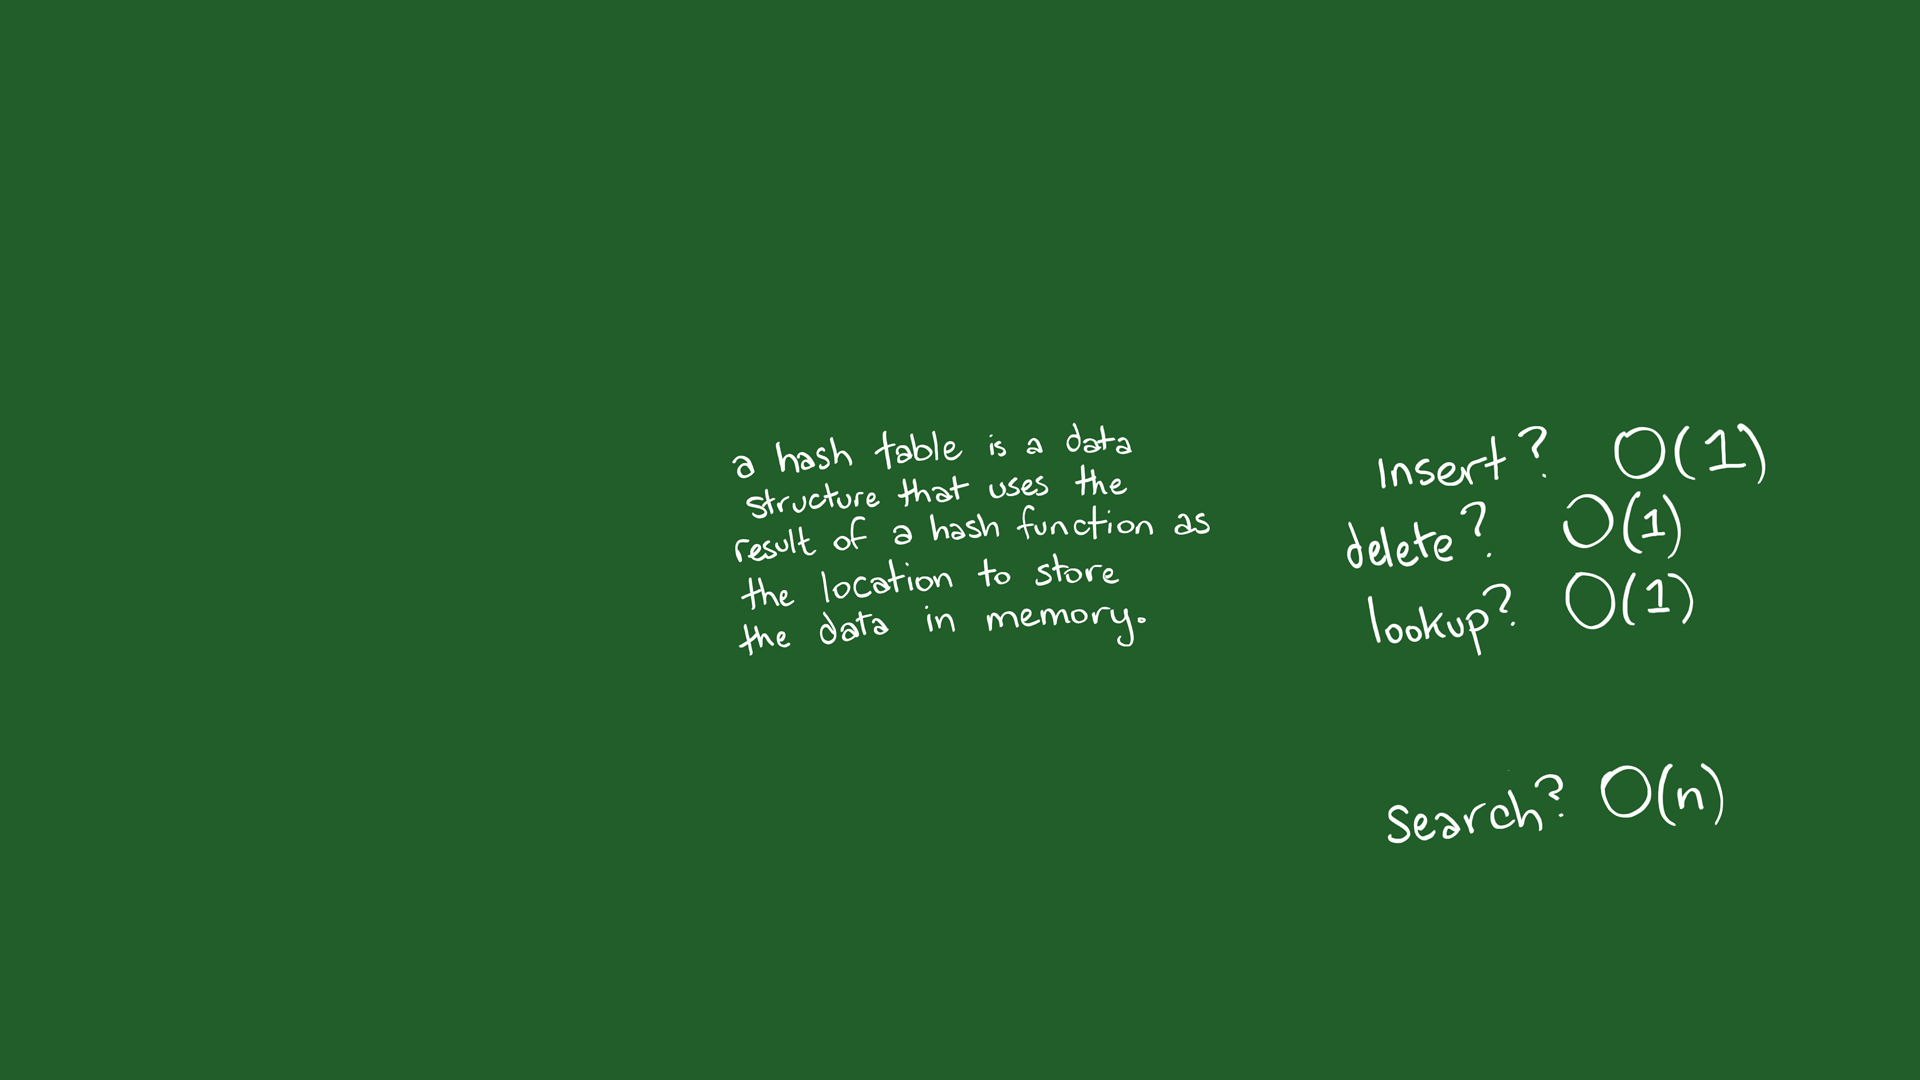 a hash table is a data
structure that uses the
result of a hash function as
the location to store
the data in memory.
Insert? O(1)
delete? O(1)
lookup? O(1)
Search? O(n)